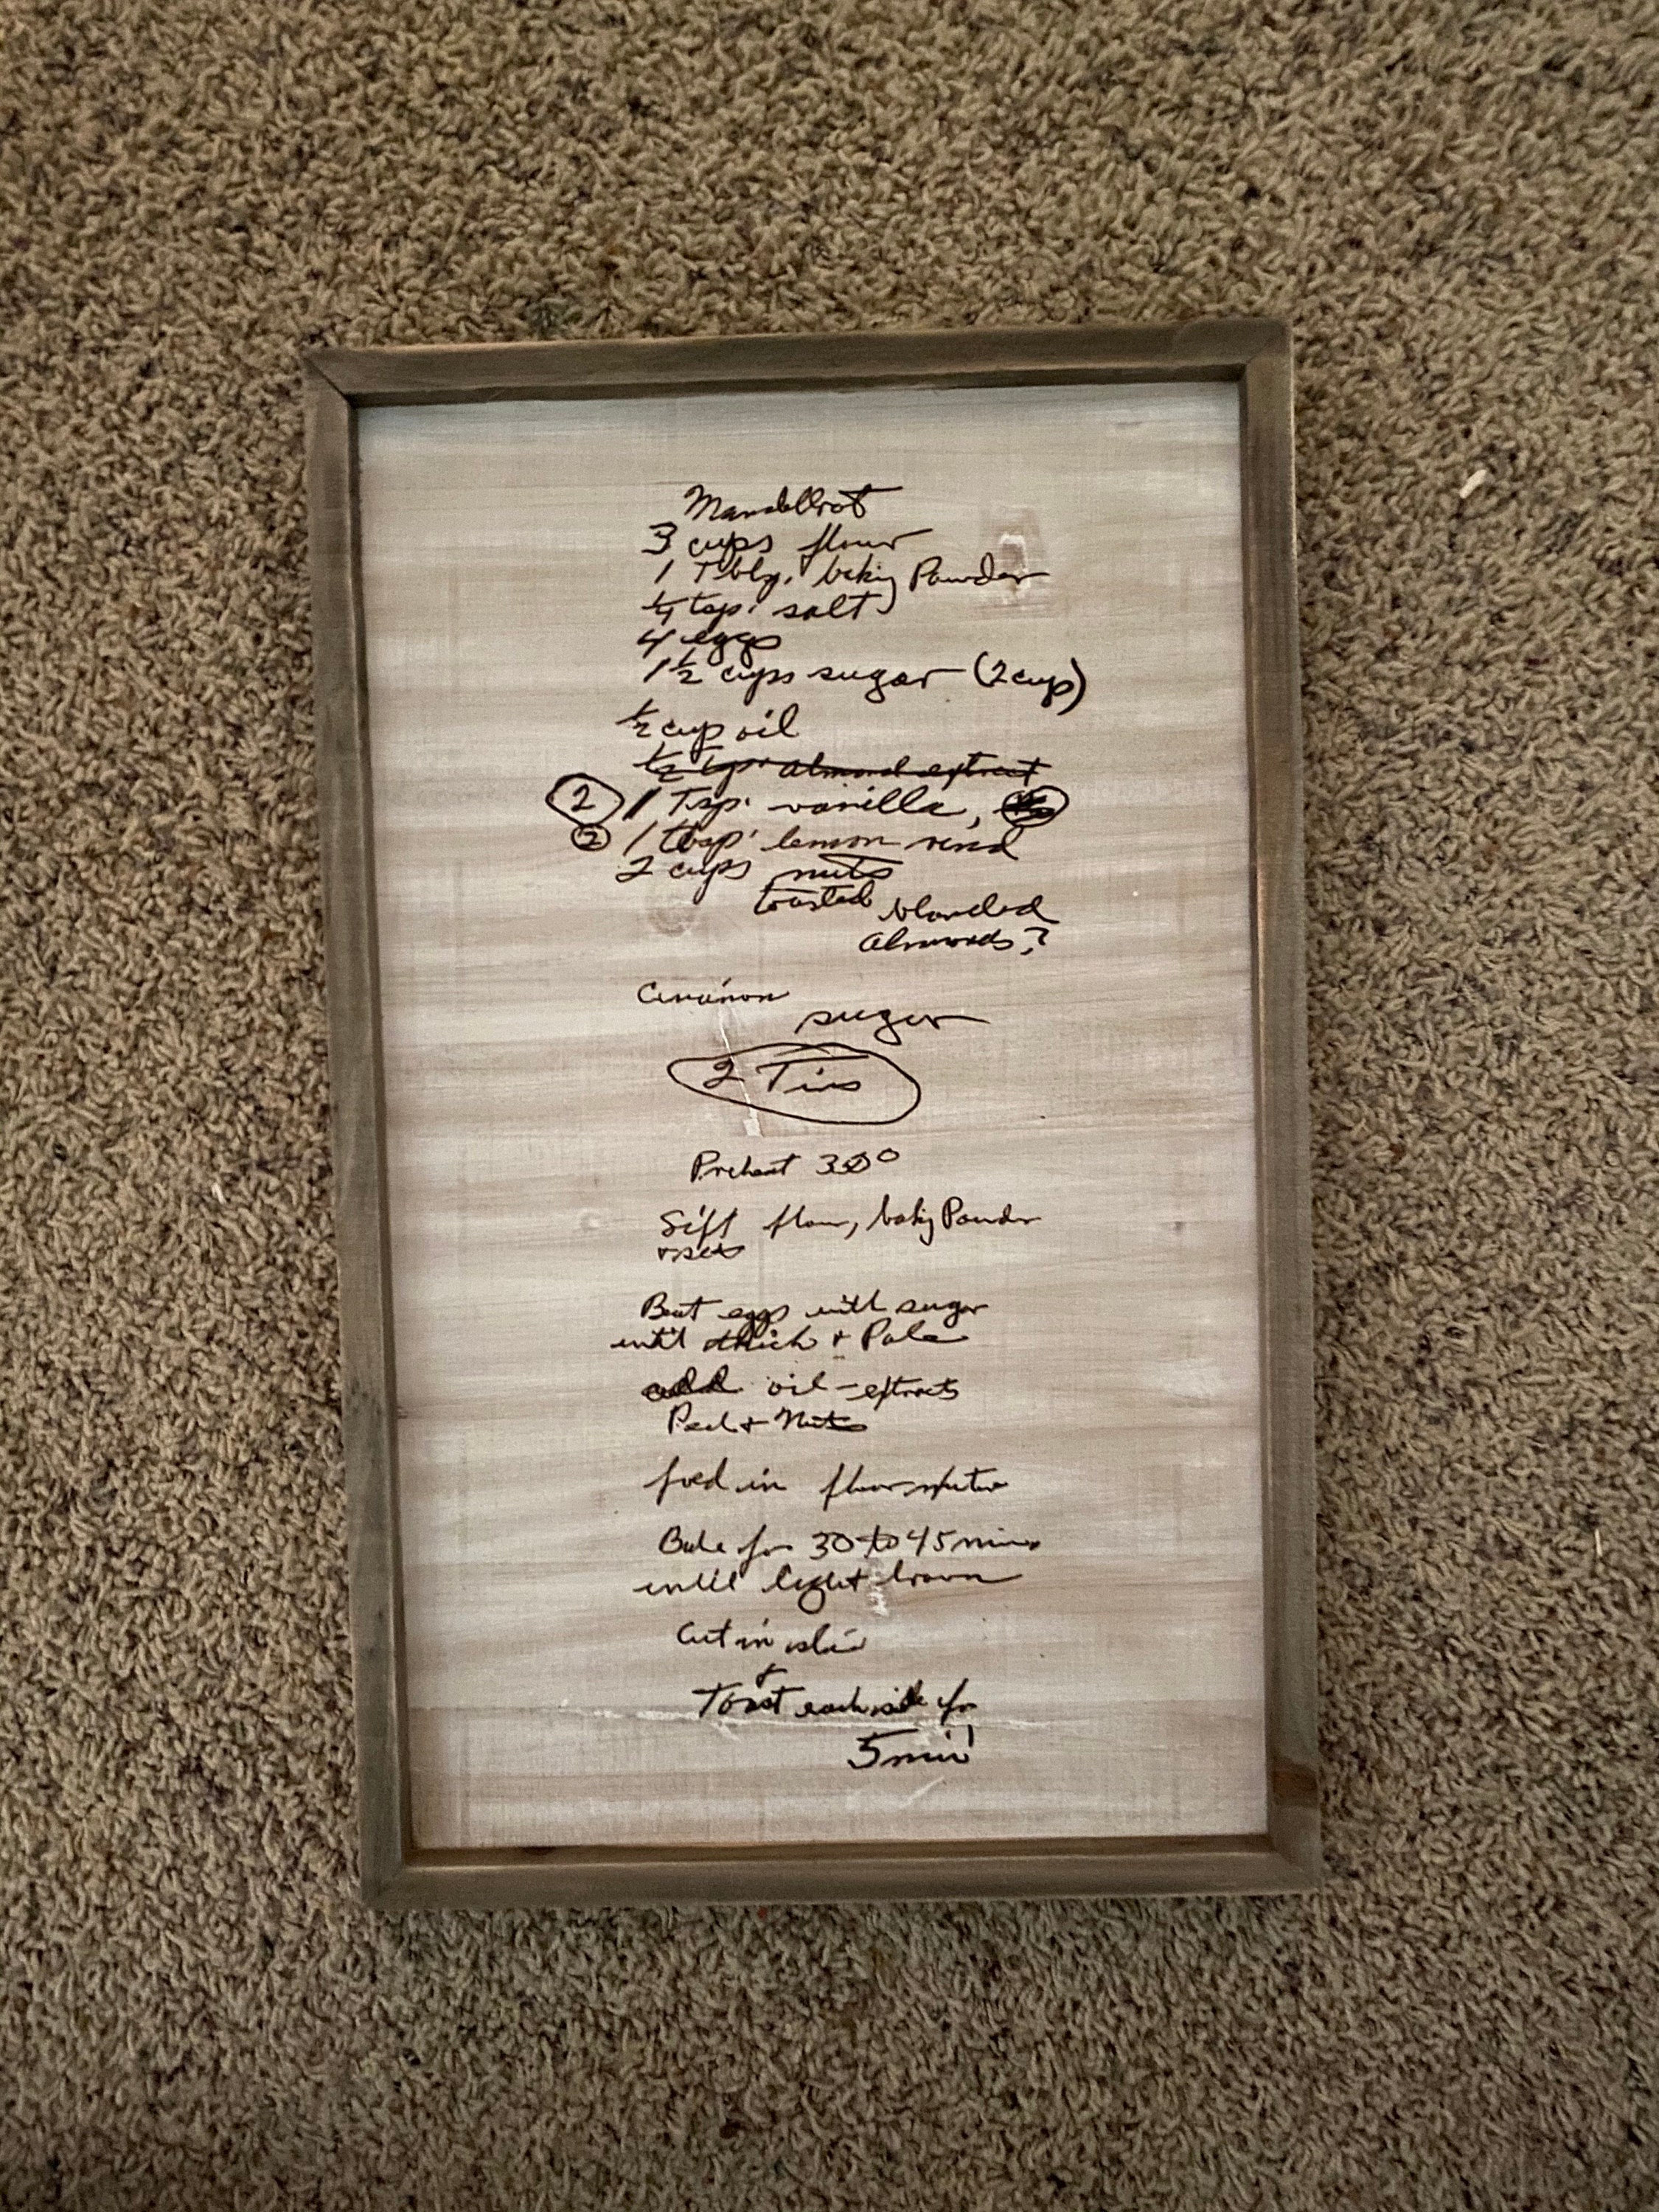 Mandelbrot
3 cups flour
1 Tblg. bakig Powder
1/4 tsp. salt
4 eggs
1 1/2 cups sugar (2 cup)
1/2 cup oil
1/2 tsp. almond extract
2 1 Tsp. vanilla,
2 1 tbsp. lemon rind
2 cups nuts
toasted blanded
almonds?
Cinnamon
sugar
2 Tins
Preheat 350°
Sift flour, bakig Powder
Beat eggs with sugar
until thick + Pale
add oil - extracts
Peel + Nuts
fold in flour
Bake for 30 to 45 mins
until light brown
Cut in
+
Toast each side for
5 min